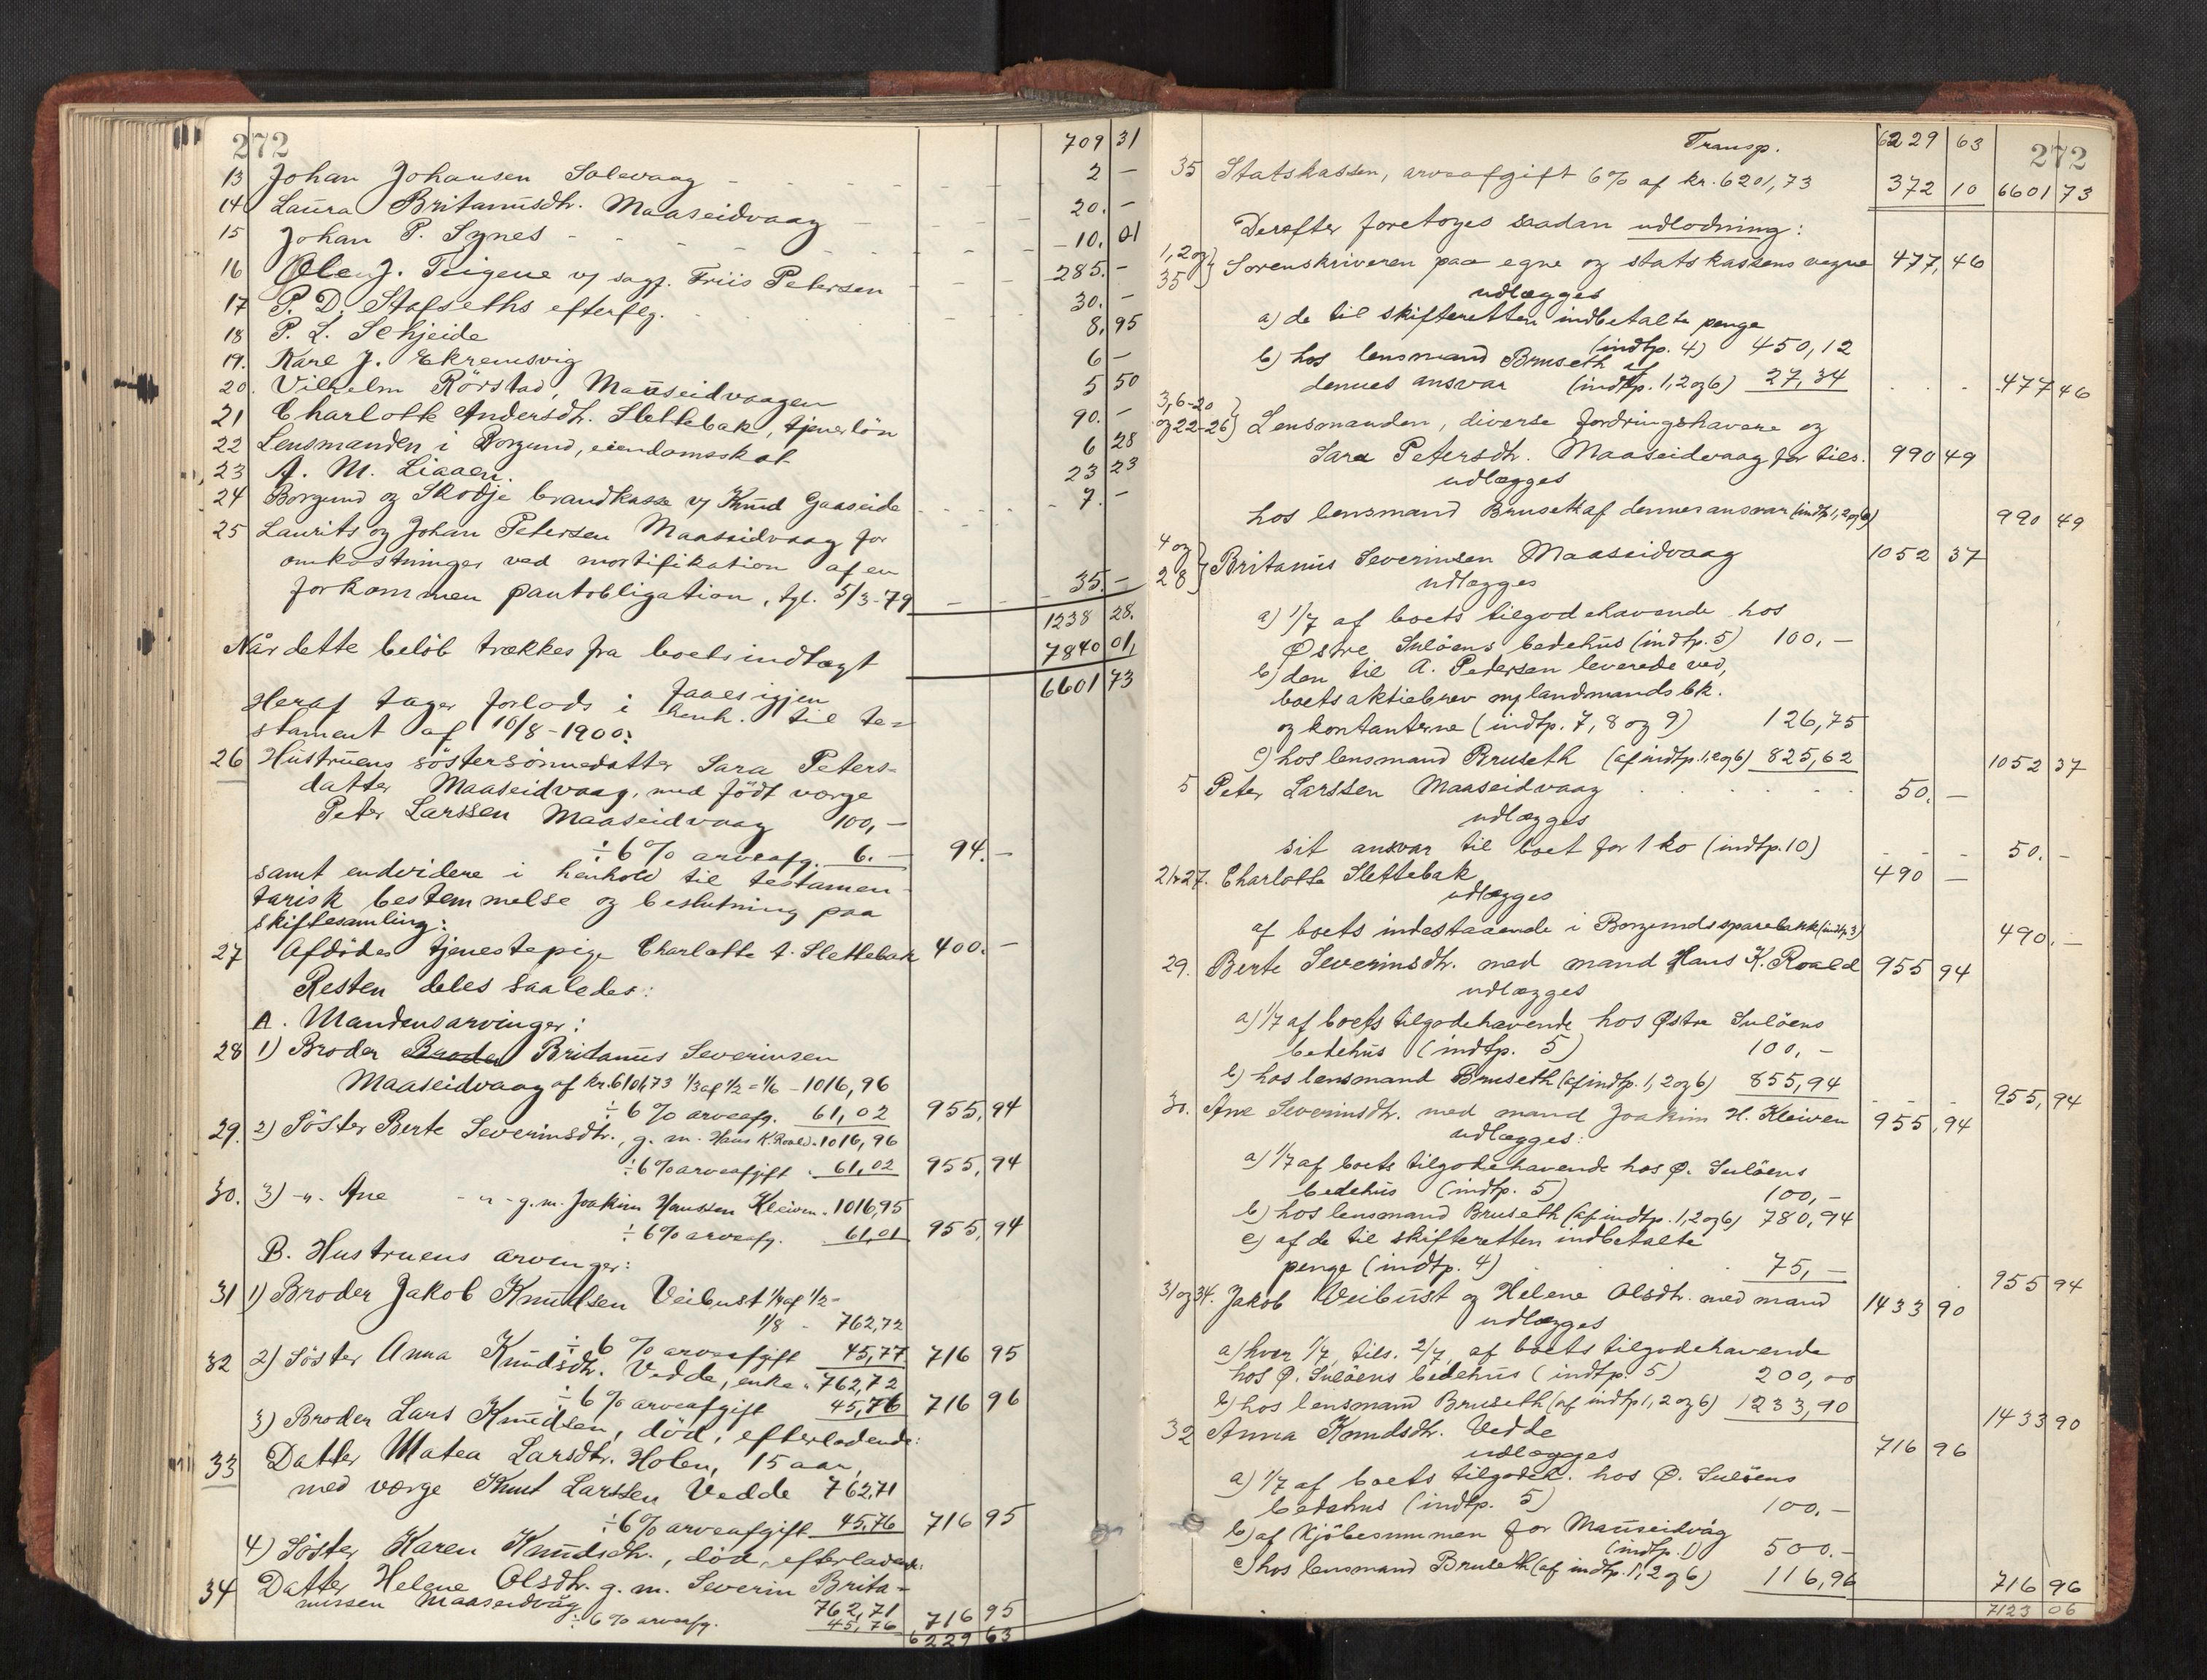 272
709 31
13 Johan Johansen Solevaag - 2 -
14 Laura Britanusdtr. Maaseidvaag - 20. -
15 Johan P. Synes - 10. 01
16 Ole J. Teigene v/ sagf. Friis Petersen 285. -
17 P. D. Stafseths efterflg. 30. -
18 P. L. Schjeide 8. 95
19. Karl J. Ekremsvig 6 -
20. Vilhelm Rörstad, Mauseidvaagen 5 50
21 Charlotte Andersdtr. Slettebak, tjenerlön 90. -
22 Lensmanden i Borgund, eiendomsskat 6 28
23 A. M. Liaaen. 23 23
24 Borgund og Skodje brandkasse v/ Knud Gaaseide 7. -
25 Laurits og Johan Petersen Maaseidvaag for
omkostninger ved mortifikation af en
forkommen pantobligation, tgl. 5/3-79 35. -
1238 28.
Når dette belöb trækkes fra boets indtægt 7840 01,
faaes igjen 6601 73
Heraf tager forlods i henh. til te=
stament af 10/8-1900:
26 Hustruens söstersönnedatter Sara Peters-
datter Maaseidvaag, med födt værge
Peter Larssen Maaseidvaag 100, -
÷ 6 % arveafg. 6. - 94. -
samt endvidere i henhold til testamen-
tarisk bestemmelse og beslutning paa
skiftesamling:
27 Afdödes tjenestepige Charlotte A. Slettebak 400. -
Resten deles saaledes:
A. Mandens arvinger:
28 1) Broder Broder Britanus Severinsen
Maaseidvaag af kr. 6101,73 1/3 af 1/2 = 1/6 - 1016,96
÷ 6 % arveafg. 61,02 955, 94
29. 2) Söster Berte Severinsdtr., g. m. Hans K. Roald. 1016,96
÷ 6 % arveafgift . 61,02 955, 94
30. 3) -"- Ane -"- g. m. Joakim Hanssen Kleiven . 1016,95
÷ 6 % arveafg. 61,01 955, 94
B. Hustruens arvinger:
31 1) Broder Jakob Knudsen Veibust 1/4 af 1/2 =
1/8 - 762,72
÷ 6 % arveafgift 45,77 716 95
32 2) Söster Anna Knudsdtr. Vedde, enke " 762,72
÷ 6 % arveafgift 45,76 716 96
3) Broder Lars Knudsen, död, efterladende:
33 Datter Matea Larsdtr. Holen, 15 aar,
med værge Knut Larssen Vedde 762,71
÷ 6 % arveafgift 45,76 716 95
4) Söster Karen Knudsdtr., död, efterladende:
34 Datter Helene Olsdtr. g. m. Severin Brita-
nussen Maaseidvåg 762,71
÷ 6 % arveafg. 45,76 716 95
6229 63
Transp. 6229 63 272
35 Statskassen, arveafgift 6 % af kr. 6201,73 372 10 6601 73
Derefter foretoges saadan udlodning:
1, 2 og 35 } Sorenskriveren paa egne og statskassens vegne 477, 46
udlægges
a) de til skifteretten indbetalte penge
(indtp. 4) 450,12
b) hos lensmand Bruseth af
dennes ansvar (indtp. 1, 2 og 6) 27,34 . . . 477 46
3, 6-20 og 22-26 } Lensmanden, diverse fordringshavere og
Sara Petersdtr. Maaseidvaag for tils. 990 49
udlægges
hos lensmand Bruseth af dennes ansvar (indtp 1, 2 og 6) 990 49
4 og 28 } Britanus Severinsen Maaseidvaag 1052 37
udlægges
a) 1/7 af boets tilgodehavende hos
Østre Sulöens bedehus (indtp. 5) 100, -
b) den til A. Pedersen leverede ved,
boets aktiebrev i landmandsbk.
og kontanterne (indtp. 7, 8 og 9) 126,75
c) hos lensmand Bruseth (af indtp. 1, 2 og 6) 825,62 1052 37
5 Peter Larssen Maaseidvaag 50. -
udlægges
sit ansvar til boet for 1 ko (indtp. 10) - - - 50. -
21 & 27. Charlotte Slettebak 490 -
udlægges
af boets indestaaende i Borgunds sparebank (indtp 3) 490. -
29. Berte Severinsdtr. med mand Hans K. Roald 955 94
udlægges
a) 1/7 af boets tilgodehavende hos Østre Sulöens
bedehus (indtp. 5) 100, -
b) hos lensmand Bruseth (af indtp. 1, 2 og 6) 855,94 - - - 955, 94
30. Ane Severinsdtr. med mand Joakim H. Kleiven 955, 94
udlægges:
a) 1/7 af boets tilgodehavende hos Ø. Sulöens
bedehus (indtp. 5) 100, -
b) hos lensmand Bruseth (af indtp. 1, 2 og 6) 780,94
c) af de til skifteretten indbetalte
penge (indtp. 4) 75, - 955 94
31 og 34. Jakob Veibust og Helene Olsdtr. med mand 1433 90
udlægges
a) hver 1/7, tils. 2/7, af boets tilgodehavende
hos Ø. Sulöens bedehus (indtp. 5) 200,00
b) hos lensmand Bruseth (af indtp 1, 2 og 6) 1233,90 1433 90
32 Anna Knudsdtr. Vedde 716 96
udlægges
a) 1/7 af boets tilgodeh. hos Ø. Sulöens
bedehus (indtp. 5) 100. -
b) af kjöbesummen for Mauseidvåg
(indtp. 1) 500. -
c) hos lensmand Bruseth (af indtp. 1, 2 og 6) 116,96 716 96
7123 06